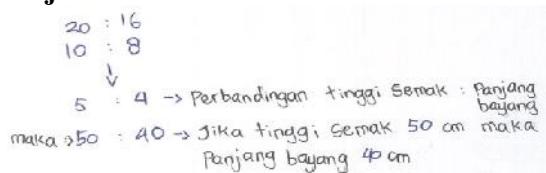 20 : 16
10 : 8
5 : 4 → Perbandingan tinggi semak : Panjang bayang
maka → 50 : 40 → Jika tinggi semak 50 cm maka
Panjang bayang 40 cm